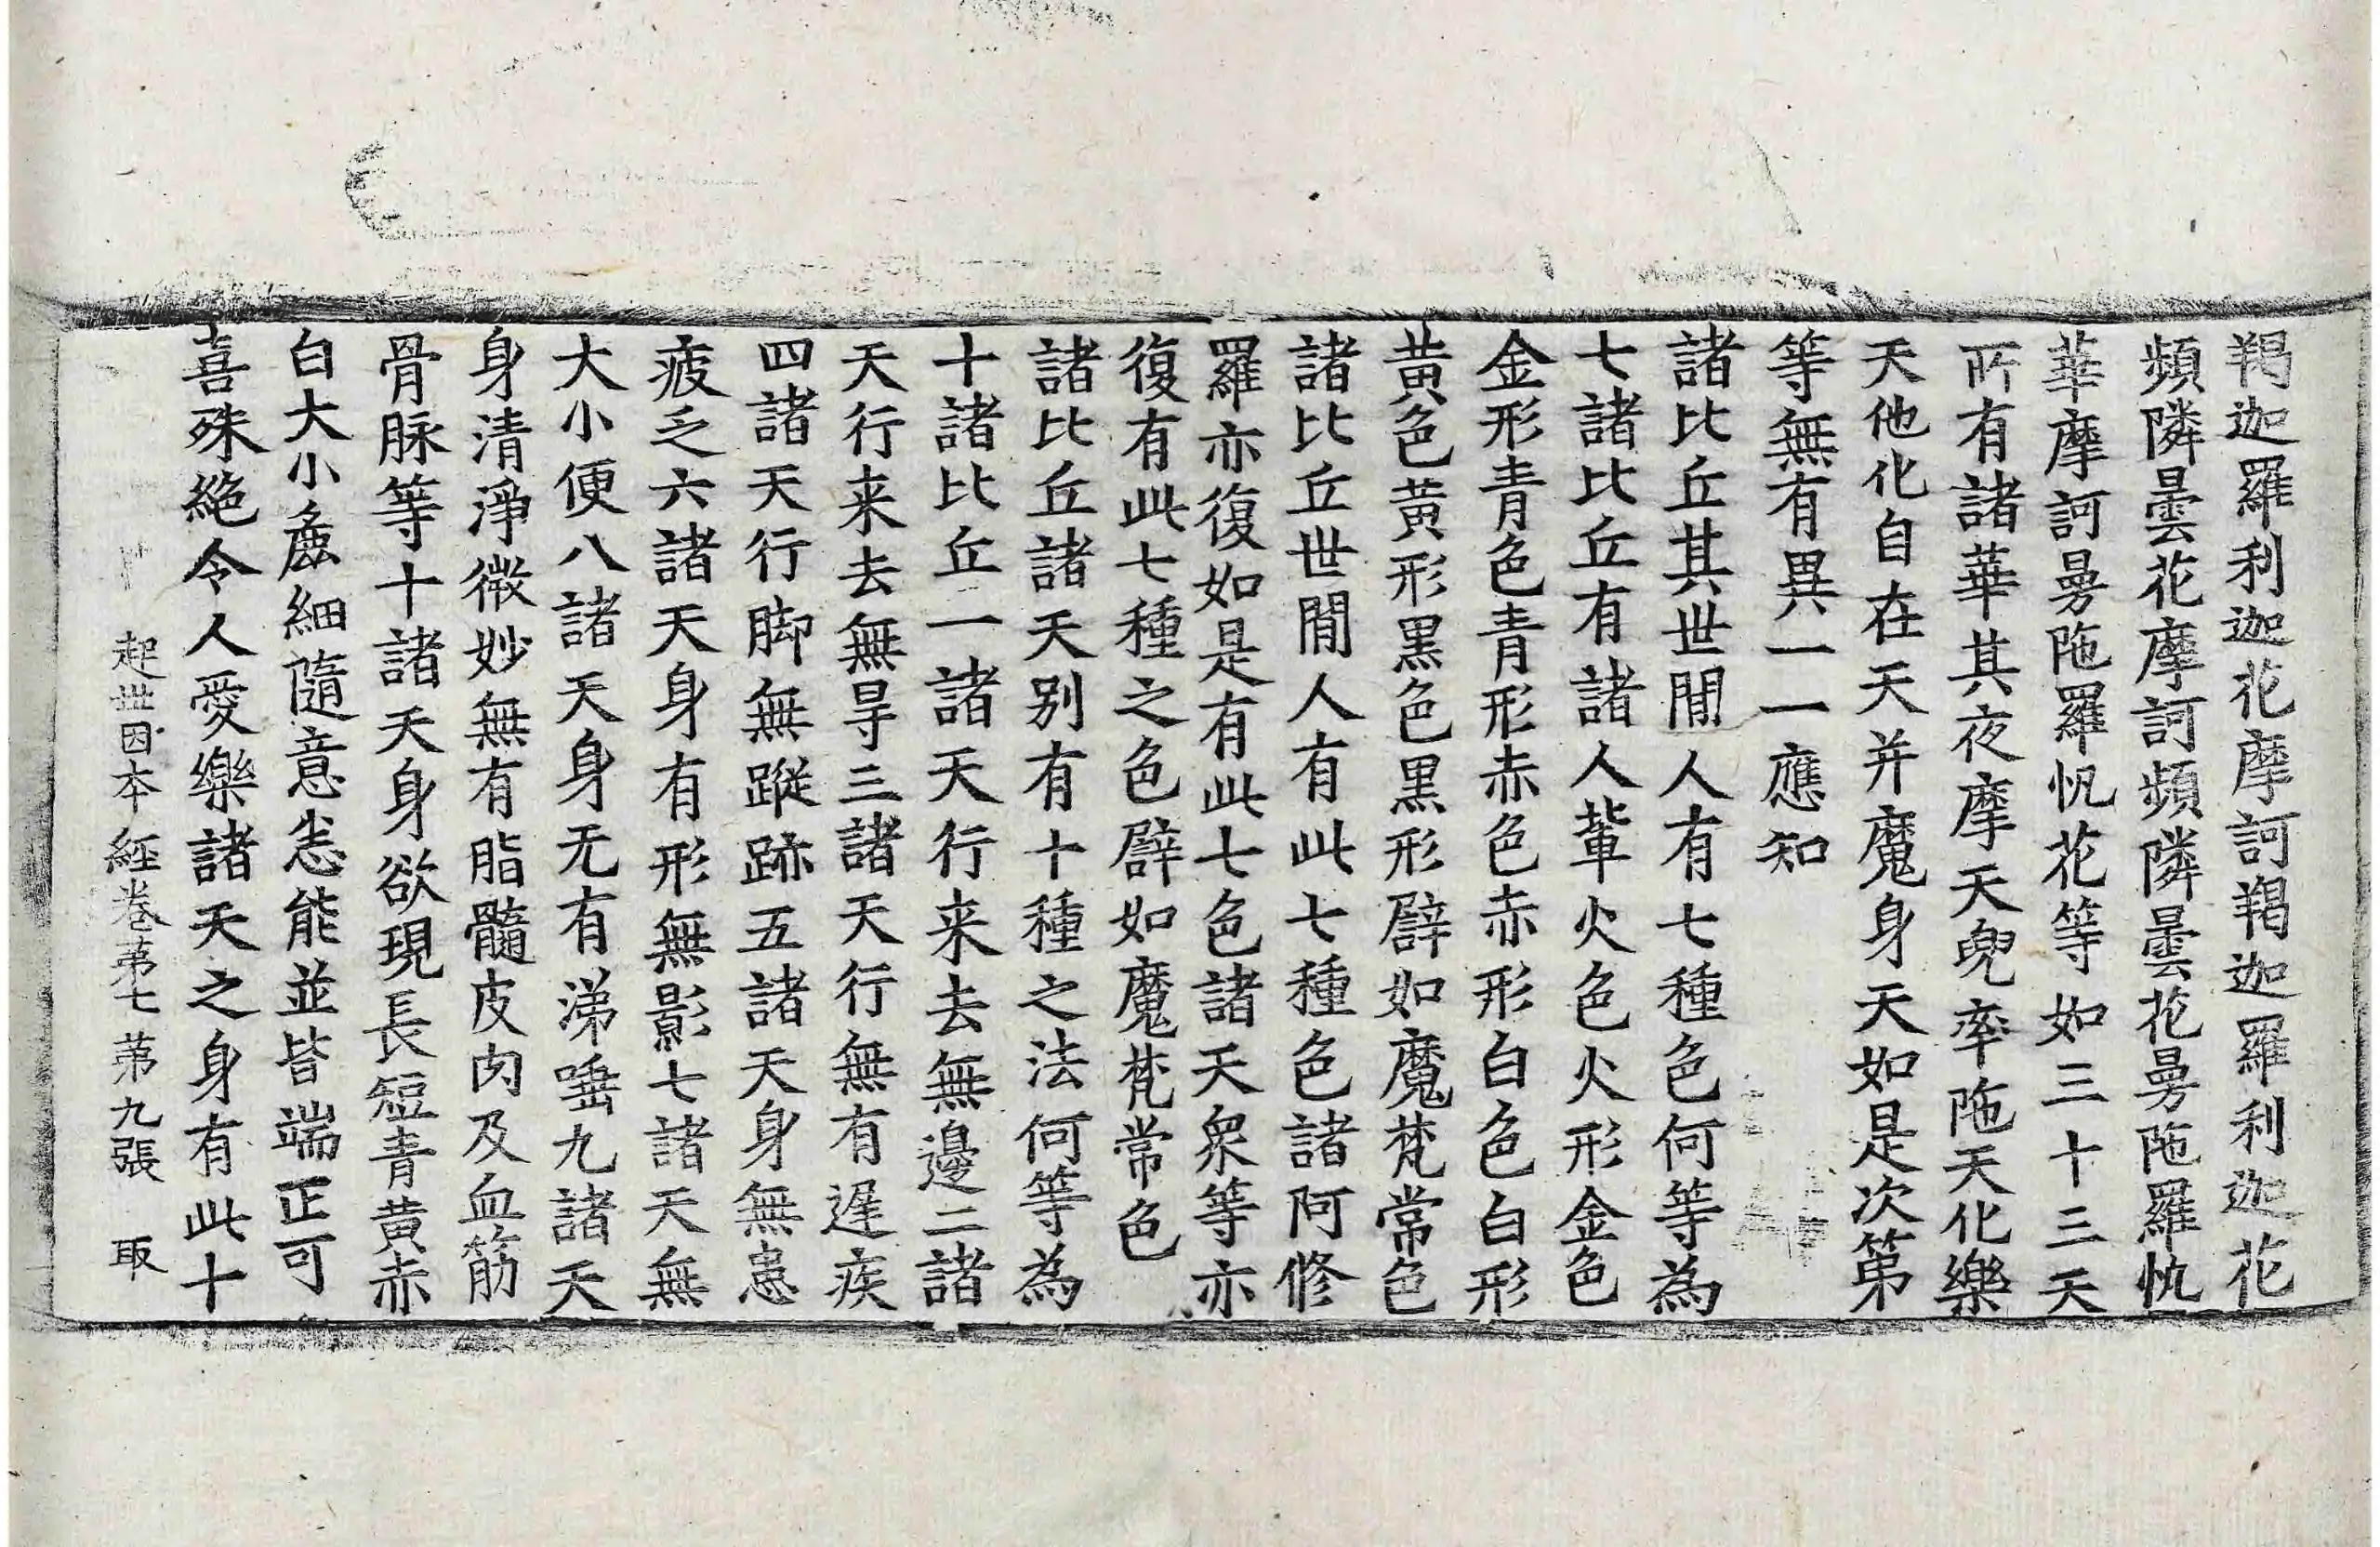 羯迦羅利迦花摩訶羯迦羅利迦花
頻隣曇花摩訶頻隣曇花曼陁羅帆
華摩訶曼陁羅帆花等如三十三天
所有諸華其夜摩天兜率陁天化樂
天他化自在天并魔身天如是次第
等無有異一一應知
諸比丘其世閒人有七種色何等為
七諸比丘有諸人輩火色火形金色
金形青色青形赤色赤形白色白形
黄色黄形黒色黒形譬如魔梵常色
諸比丘世閒人有此七種色諸阿修
羅亦復如是有此七色諸天衆等亦
復有此七種之色譬如魔梵常色
諸比丘諸天别有十種之法何等為
十諸比丘一諸天行来去無邊二諸
天行来去無㝵三諸天行無有遅疾
四諸天行脚無蹤跡五諸天身無患
疲乏六諸天身有形無影七諸天無
大小便八諸天身无有涕唾九諸天
身清淨微妙無有脂髓皮肉及血筋
骨脉等十諸天身欲現長短青黄赤
白大小麁細隨意悉能並皆端正可
喜殊絶令人愛樂諸天之身有此十
起世因本經卷第七 第九張 取